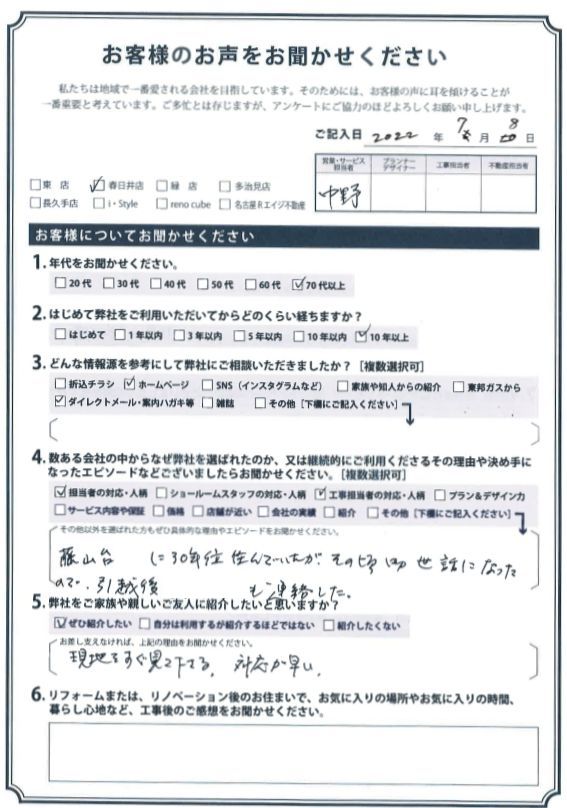 お客様のお声をお聞かせください
私たちは地域で一番愛される会社を目指しています。そのためには、お客様の声に耳を傾けることが
一番重要と考えています。ご多忙とは存じますが、アンケートにご協力のほどよろしくお願い申し上げます。
ご記入日 2022 年 7 月 8 日
営業・サービス担当者 プランナーデザイナー 工事担当者 不動産担当者
中野
□東 店 ☑春日井店 □緑 店 □多治見店
□長久手店 □i・Style □reno cube □名古屋Rエイジ不動産
お客様についてお聞かせください
1. 年代をお聞かせください。
□20代 □30代 □40代 □50代 □60代 ☑70代以上
2. はじめて弊社をご利用いただいてからどのくらい経ちますか？
□はじめて □1年以内 □3年以内 □5年以内 □10年以内 ☑10年以上
3. どんな情報源を参考にして弊社にご相談いただきましたか？［複数選択可］
□折込チラシ ☑ホームページ □SNS（インスタグラムなど） □家族や知人からの紹介 □東邦ガスから
☑ダイレクトメール・案内ハガキ等 □雑誌 □その他［下欄にご記入ください］
4. 数ある会社の中からなぜ弊社を選ばれたのか、又は継続的にご利用くださるその理由や決め手に
なったエピソードなどございましたらお聞かせください。［複数選択可］
☑担当者の対応・人柄 □ショールームスタッフの対応・人柄 ☑工事担当者の対応・人柄 □プラン&デザイン力
□サービス内容や保証 □価格 □店舗が近い □会社の実績 □紹介 □その他［下欄にご記入ください］
その他以外を選ばれた方もぜひ具体的な理由やエピソードをお聞かせください。
藤山台 に30年位住んでいたが その頃 世話になった
ので、引越後 も連絡した。
5. 弊社をご家族や親しいご友人に紹介したいと思いますか？
☑ぜひ紹介したい □自分は利用するが紹介するほどではない □紹介したくない
お差し支えなければ、上記の理由をお聞かせください。
現地をすぐ見て下さる。対応が早い。
6. リフォームまたは、リノベーション後のお住まいで、お気に入りの場所やお気に入りの時間、
暮らし心地など、工事後のご感想をお聞かせください。